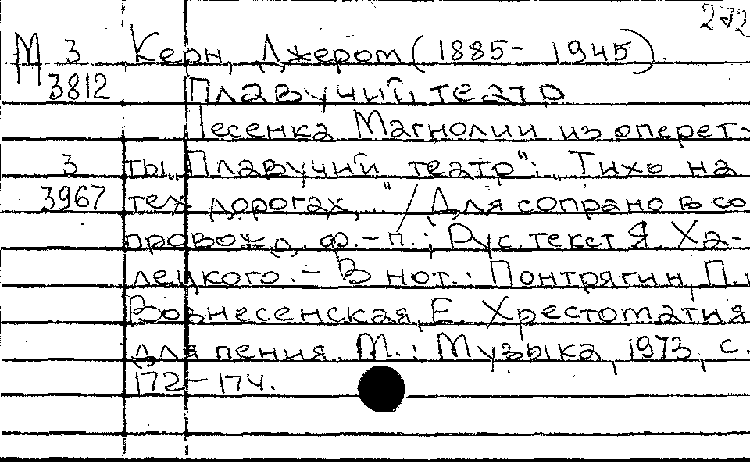 272
М 3 Керн, Джером (1885- 1945)
3812 Плавучий театр
Песенка Магнолии из оперет-
3 ты „Плавучий театр": „Тихо на
3967 тех дорогах, " / Для сопрано в со
провожд. ф.-п.; Рус. текст Я. Ха-
лецкого. - В нот.: Понтрягин, П.,
Вознесенская, Е. Хрестоматия
для пения. М.: Музыка, 1973, с.
172-174.